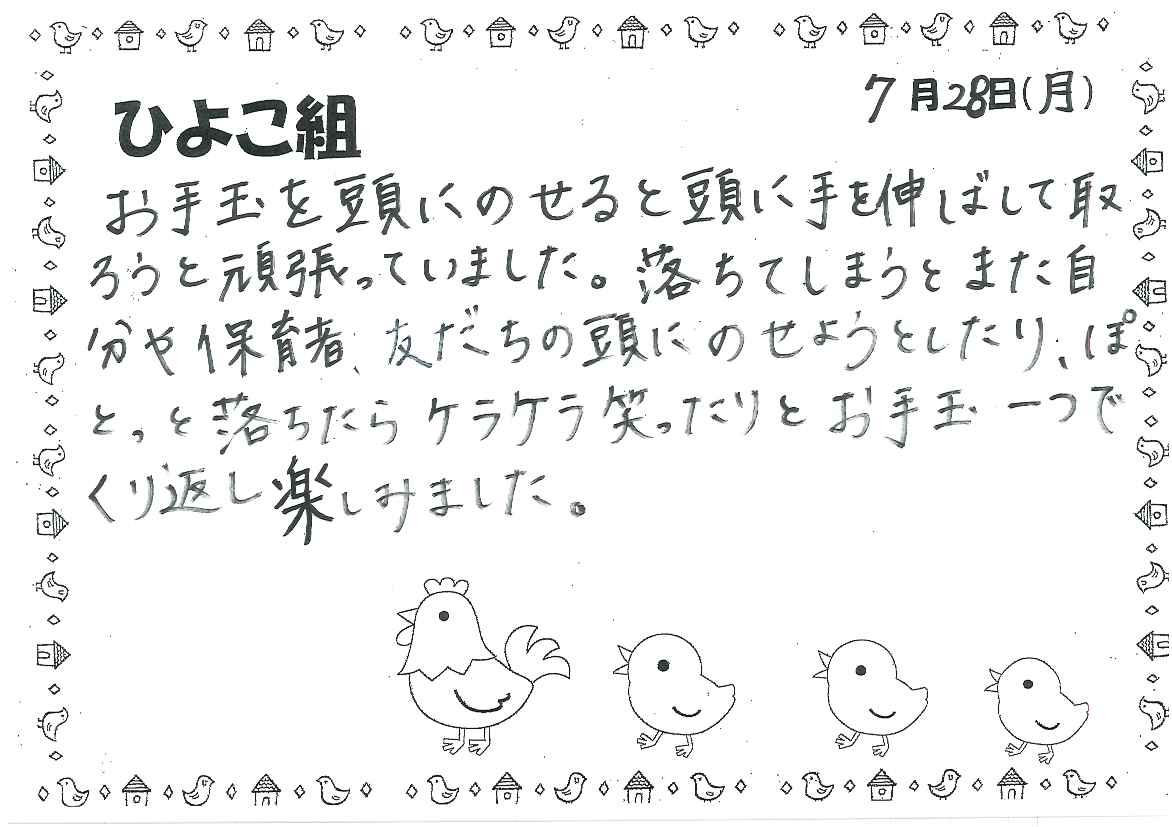 7月28日(月)
ひよこ組
お手玉を頭にのせると頭に手を伸ばして取
ろうと頑張っていました。落ちてしまうとまた自
分や保育者、友だちの頭にのせようとしたり、ぽ
とっと落ちたらケラケラ笑ったりとお手玉一つで
くり返し楽しみました。